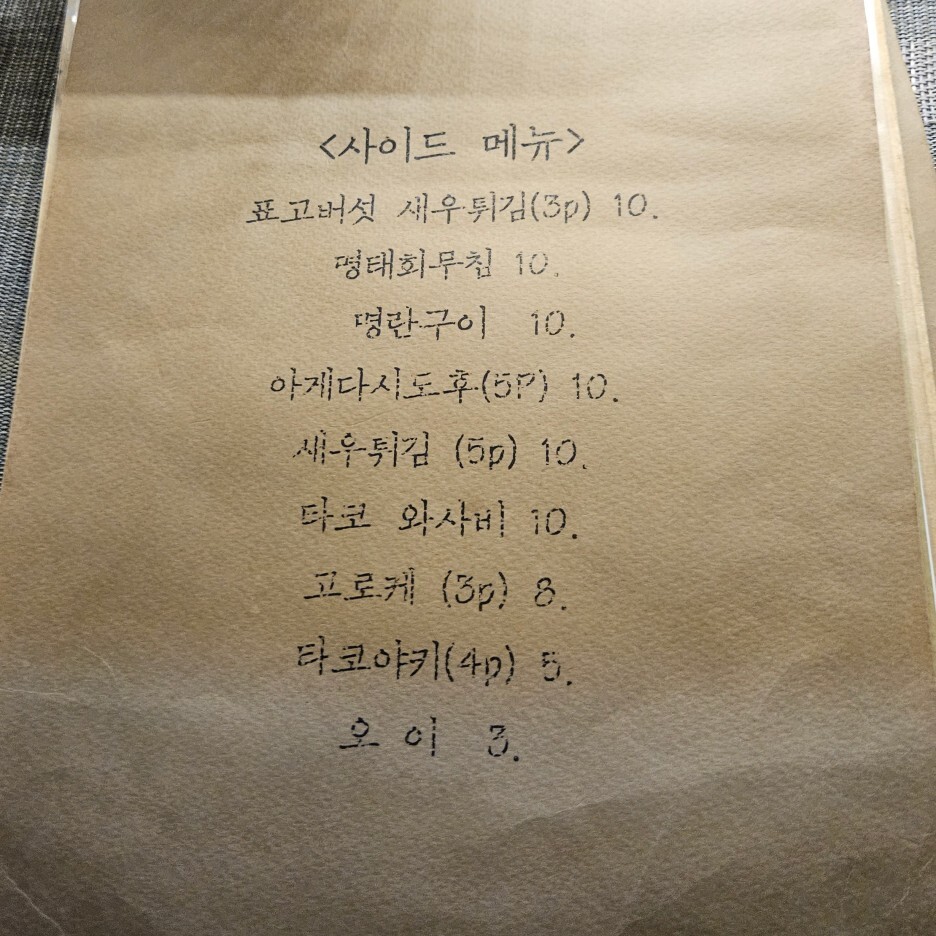 <사이드 메뉴>
표고버섯 새우튀김(3p) 10.
명태회무침 10.
명란구이 10.
아게다시도후(5P) 10.
새우튀김 (5p) 10.
타코 와사비 10.
고로케 (3p) 8.
타코야키(4p) 5.
오이 3.